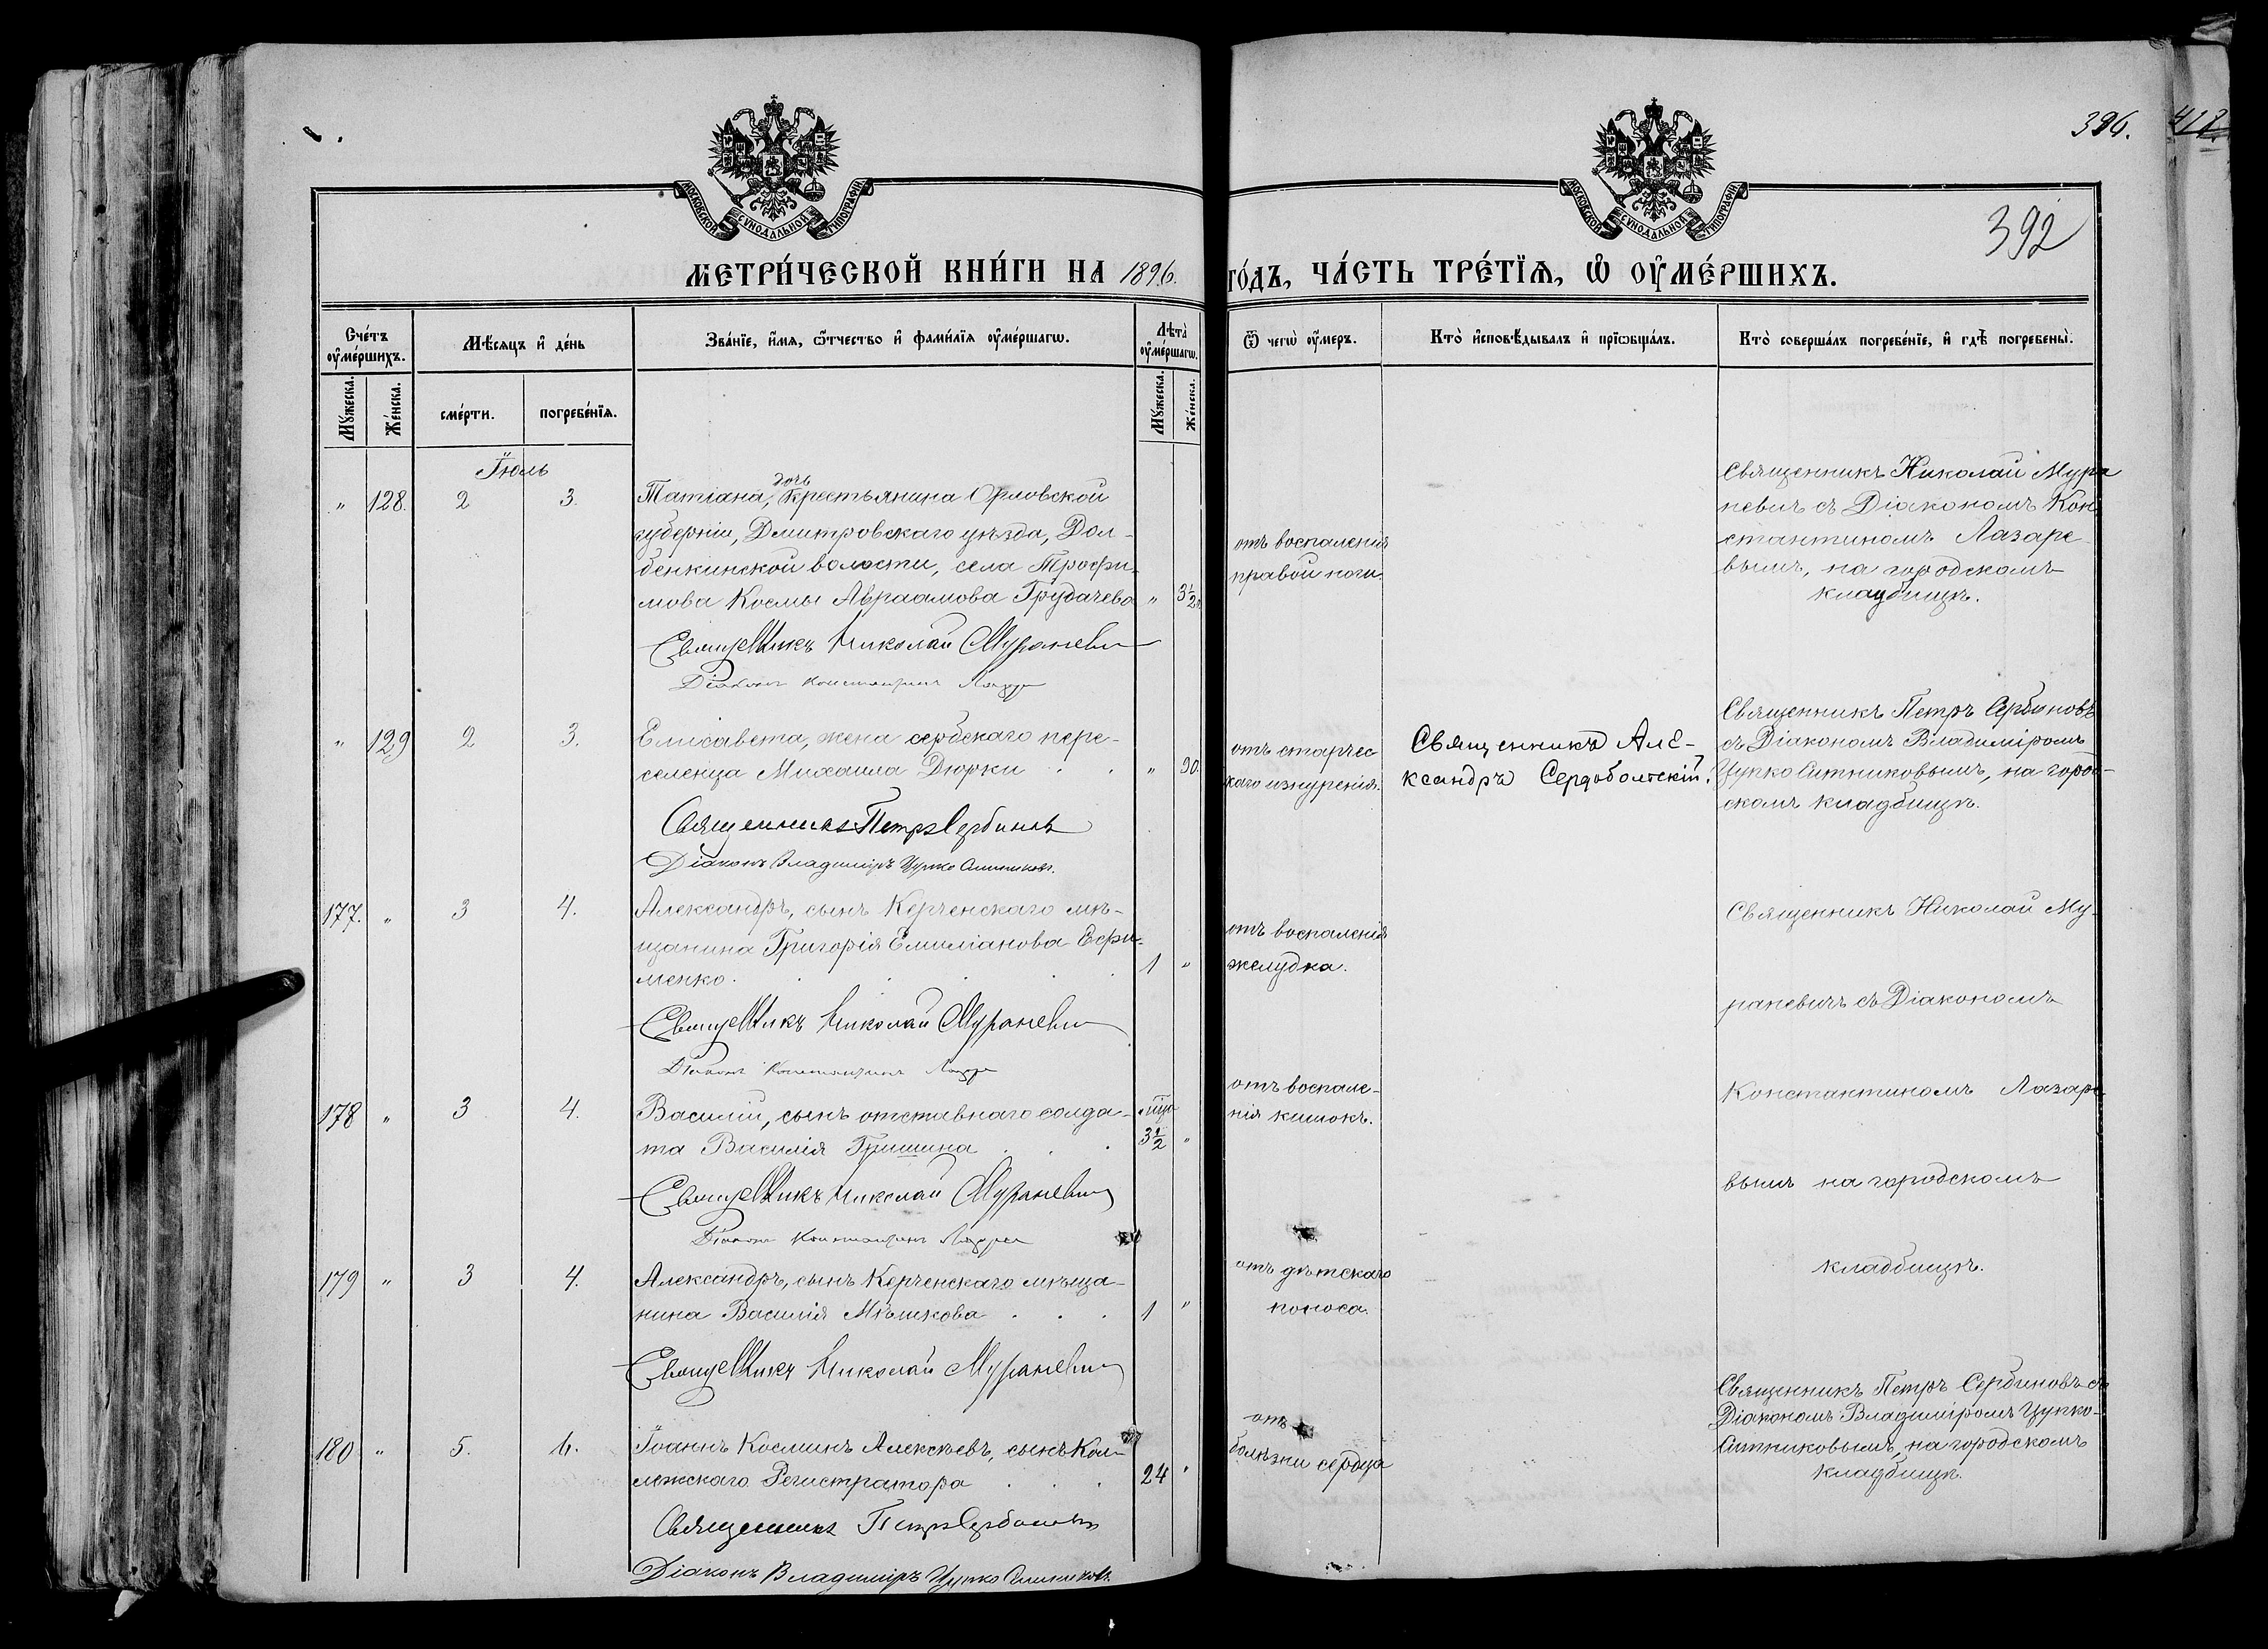 396.
418
392
МОСКОВСКОЙ СѴНОДАЛЬНОЙ ТИПОГРАФІИ
МОСКОВСКОЙ СѴНОДАЛЬНОЙ ТИПОГРАФІИ
МЕТРИ́ЧЕСКОЙ КНИ́ГИ НА 1896.
ГО́ДЪ, ЧА́СТЬ ТРЕ́ТІЯ, Ѽ ОУ҆МЕ́РШИХЪ.
Сче́тъ оу҆ме́ршихъ.
Мѣ́сяцъ и҆ де́нь
Зва́нїе, и҆́мя, ѻ҆́тчество и҆ фами́лїя оу҆ме́ршагѡ.
Лѣта̀ оу҆ме́ршагѡ.
Ѿ чегѡ̀ оу҆́меръ.
Кто̀ и҆сповѣ́дывалъ и҆ прїѡбща́лъ.
Кто̀ соверша́лъ погребе́нїе, и҆ гдѣ̀ погребены̀.
Мꙋ́жеска.
Же́нска.
сме́рти.
погребе́нїя.
Мꙋ́жеска.
Же́нска.
Іюль
" 128. 2 3.
Татіана, дочь крестьянина Орловской
губерніи, Дмитровскаго уѣзда, Дол-
бенкинской волости, села Трофи-
мова Космы Авраамова Грудачева " 3½
Священникъ Николай Мураневич
Діаконъ Константинъ Лазаре
отъ воспаленія
правой ноги.
Священникъ Николай Мура
невич съ Діакономъ Кон
стантиномъ Лазаре
вымъ, на городскомъ
кладбищѣ.
" 129 2 3.
Елисавета, жена сербскаго пере-
селенца Михаила Дюрки " 90.
Священникъ Петръ Сербиновъ
Діаконъ Владиміръ Цупко Ситниковъ.
отъ старчес
каго изнуренія.
Священникъ Але-
ксандръ Сердобольскій.
Священникъ Петръ Сербиновъ
съ Діакономъ Владиміромъ
Цупко Ситниковымъ, на город-
скомъ кладбищѣ.
177. " 3 4.
Александръ, сынъ Керченскаго мѣ-
щанина Григорія Емиліанова Ефи-
менко. 1 "
Священникъ Николай Мураневич
Діаконъ Константинъ Лазаре
отъ воспаленія
желудка.
Священникъ Николай Му-
раневичъ съ Діакономъ
178 " 3 4.
Василій, сынъ отставнаго солда-
та Василія Гришина 3½ "
Священникъ Николай Мураневич
Діаконъ Константинъ Лазаре
отъ воспале-
нія кишокъ.
Константиномъ Лазаре
вымъ на городскомъ
179 " 3 4.
Александръ, сынъ Керченскаго мѣща-
нина Василія Мѣшкова 1 "
Священникъ Николай Мураневич
отъ дѣтскаго
поноса.
кладбищѣ.
180 " 5. 6.
Іоаннъ Косминъ Алексѣевъ, сынъ Кол-
лежскаго Регистратора 24 "
Священникъ Петръ Сербиновъ
Діаконъ Владиміръ Цупко Ситниковъ.
отъ
болѣзни сердца
Священникъ Петръ Сербиновъ съ
Діакономъ Владиміромъ Цупко-
Ситниковымъ, на городскомъ
кладбищѣ.